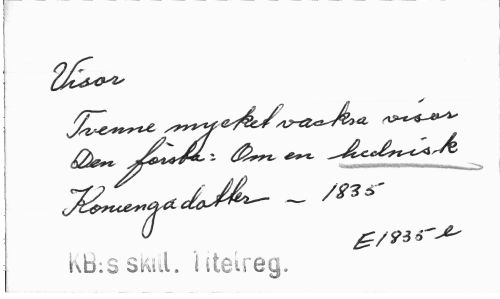 Visor
Tvenne mycket vackra visor
Den första: Om en hednisk
Konungadotter – 1835
E1835 e
KB:s skill. Titelreg.